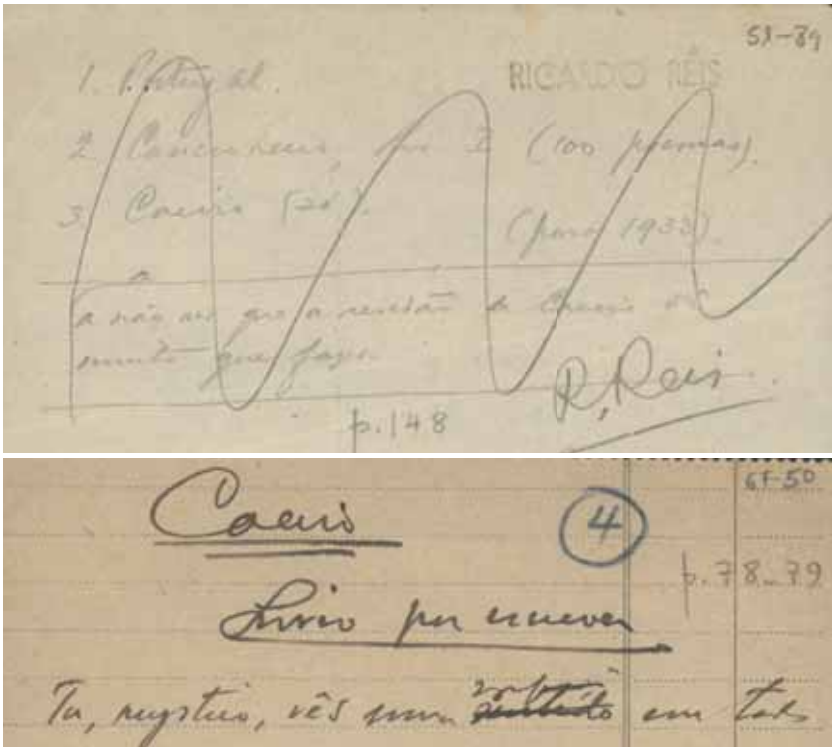 51-89
RICARDO RÉIS
1. Portugal.
2. Cancioneiro, Liv I (100 poemas).
3. Caeiro
(para 1933).
a não ser que a revisão de Caeiro dê
muito que fazer.
R. Reis
p. 148
67-50
Caeiro 4
p. 78-79
Livro por escrever
Tu, mystico, vês uma em todas